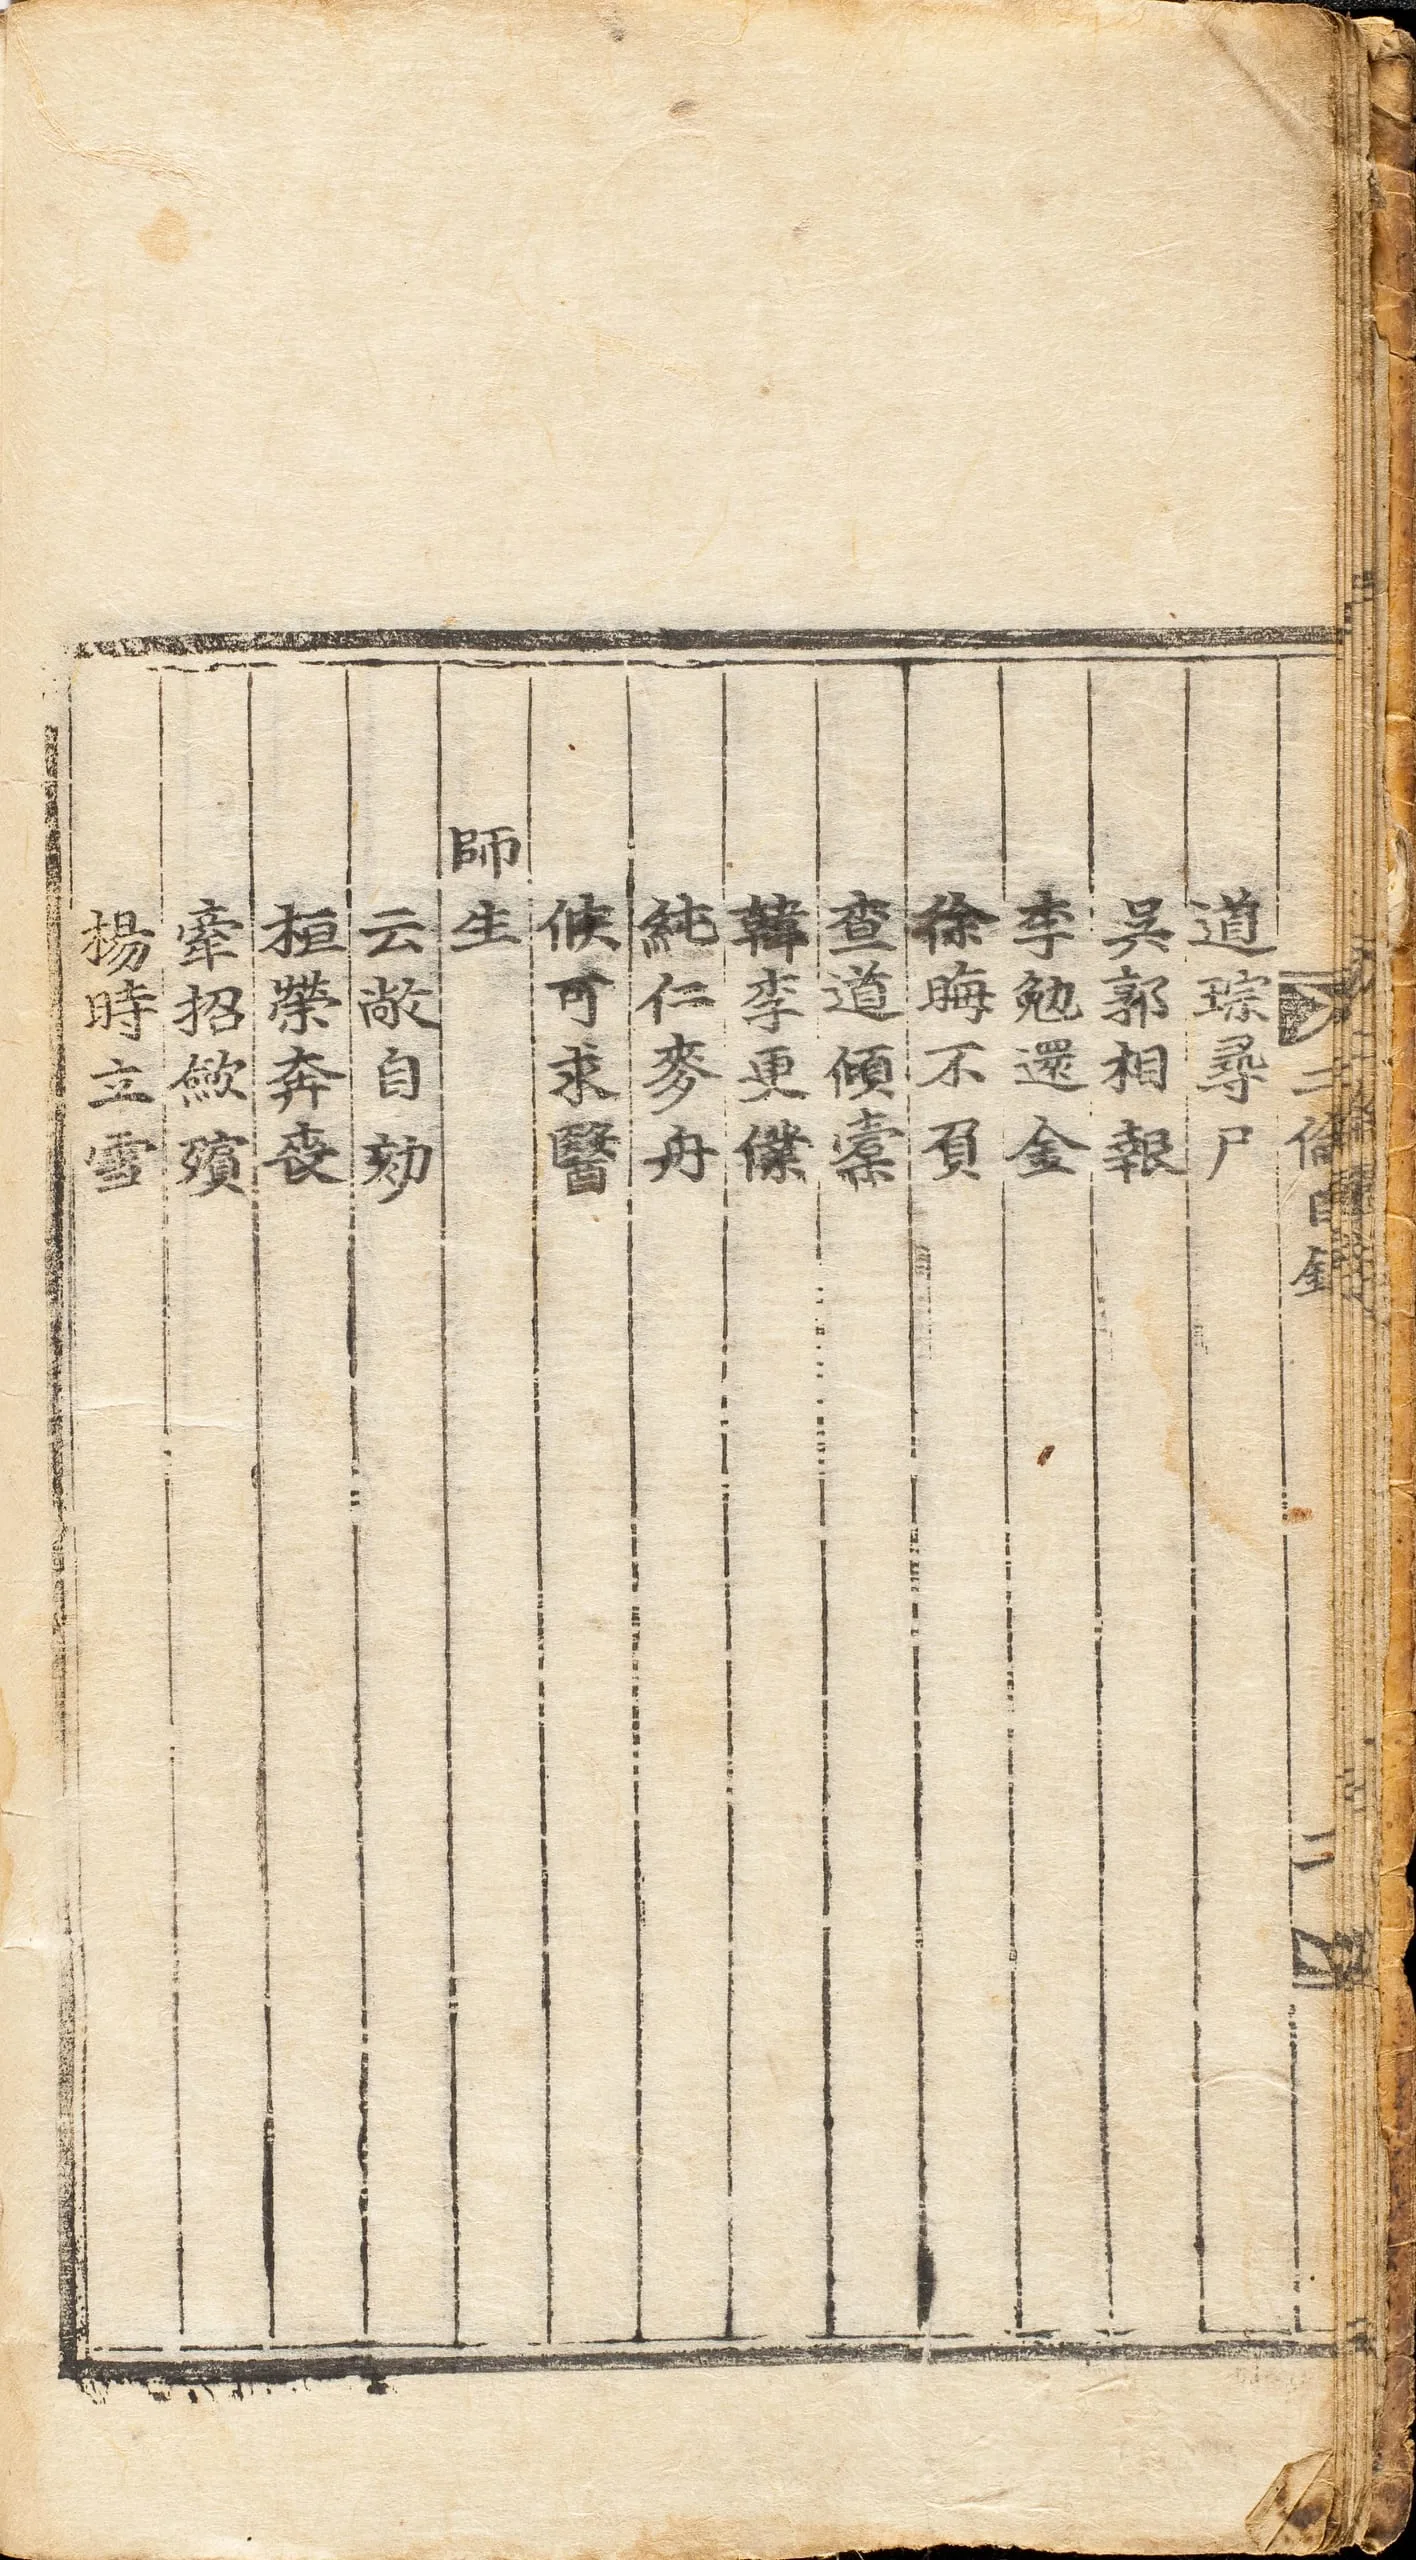 二倫目錄
二
道琮尋尸
吳郭相報
李勉還金
徐晦不負
查道傾橐
韓李更僕
純仁麥舟
侯可求醫
師生
云敞自劾
桓榮奔喪
牽招斂殯
楊時立雪